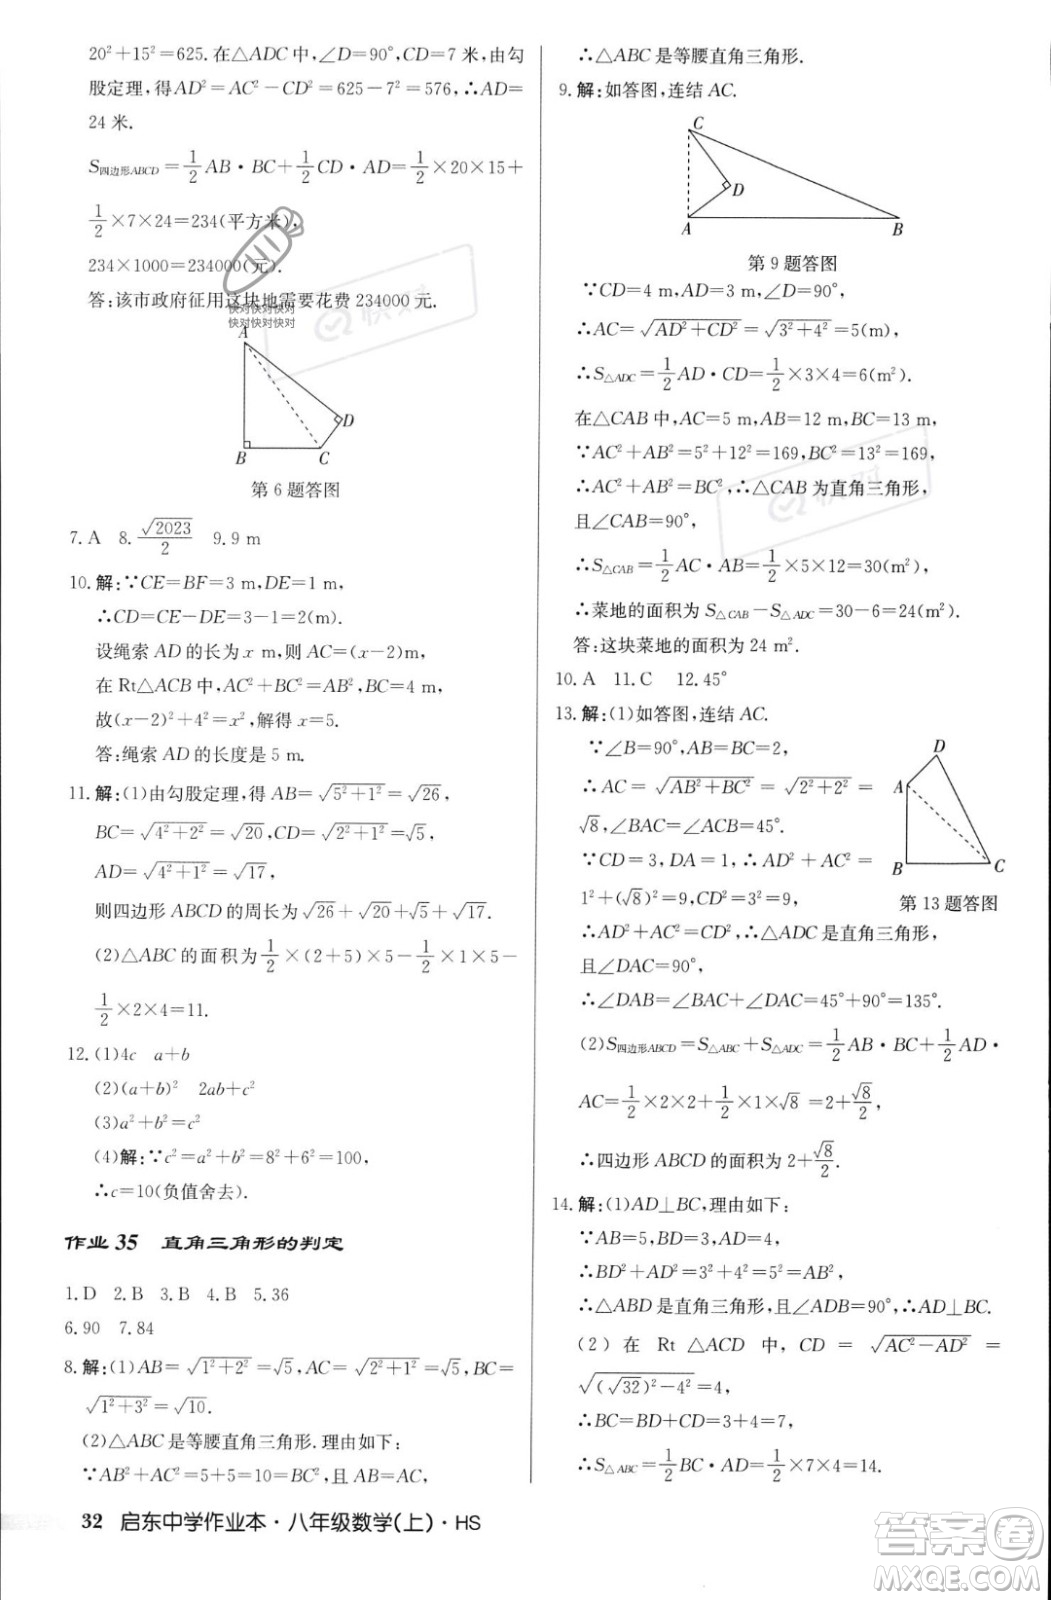 20²+15²=625.在△ADC中,∠D=90°,CD=7米,由勾
股定理,得AD²=AC²-CD²=625-7²=576,∴AD=
24米.
S四边形ABCD=1/2 AB·BC+1/2 CD·AD=1/2×20×15+
1/2×7×24=234(平方米),
234×1000=234000(元).
答:该市政府征用这块地需要花费234000元.
快对快对快对
快对快对快对
A
D
B
C
第6题答图
7.A 8.√2023/2 9.9 m
10.解:∵CE=BF=3 m,DE=1 m,
∴CD=CE-DE=3-1=2(m).
设绳索AD的长为x m,则AC=(x-2)m,
在Rt△ACB中,AC²+BC²=AB²,BC=4 m,
故(x-2)²+4²=x²,解得x=5.
答:绳索AD的长度是5 m.
11.解:(1)由勾股定理,得AB=√(5²+1²)=√26,
BC=√(4²+2²)=√20,CD=√(2²+1²)=√5,
AD=√(4²+1²)=√17,
则四边形ABCD的周长为√26+√20+√5+√17.
(2)△ABC的面积为1/2×(2+5)×5-1/2×1×5-
1/2×2×4=11.
12.(1)4c a+b
(2)(a+b)² 2ab+c²
(3)a²+b²=c²
(4)解:∵c²=a²+b²=8²+6²=100,
∴c=10(负值舍去).
作业35 直角三角形的判定
1.D 2.B 3.B 4.B 5.36
6.90 7.84
8.解:(1)AB=√(1²+2²)=√5,AC=√(2²+1²)=√5,BC=
√(1²+3²)=√10.
(2)△ABC是等腰直角三角形.理由如下:
∵AB²+AC²=5+5=10=BC²,且AB=AC,
∴△ABC是等腰直角三角形.
9.解:如答图,连结AC.
C
D
A
B
第9题答图
∵CD=4 m,AD=3 m,∠D=90°,
∴AC=√(AD²+CD²)=√(3²+4²)=5(m),
∴S△ADC=1/2 AD·CD=1/2×3×4=6(m²).
在△CAB中,AC=5 m,AB=12 m,BC=13 m,
∵AC²+AB²=5²+12²=169,BC²=13²=169,
∴AC²+AB²=BC²,∴△CAB为直角三角形,
且∠CAB=90°,
∴S△CAB=1/2 AC·AB=1/2×5×12=30(m²),
∴菜地的面积为S△CAB-S△ADC=30-6=24(m²).
答:这块菜地的面积为24 m².
10.A 11.C 12.45°
13.解:(1)如答图,连结AC.
∵∠B=90°,AB=BC=2,
∴AC=√(AB²+BC²)=√(2²+2²)=
√8,∠BAC=∠ACB=45°.
∵CD=3,DA=1,∴AD²+AC²=
1²+(√8)²=9,CD²=3²=9,
D
A
B
C
第13题答图
∴AD²+AC²=CD²,∴△ADC是直角三角形,
且∠DAC=90°,
∴∠DAB=∠BAC+∠DAC=45°+90°=135°.
(2)S四边形ABCD=S△ABC+S△ADC=1/2 AB·BC+1/2 AD·
AC=1/2×2×2+1/2×1×√8=2+√8/2,
∴四边形ABCD的面积为2+√8/2.
14.解:(1)AD⊥BC,理由如下:
∵AB=5,AD=4,BD=3,
∴BD²+AD²=3²+4²=5²=AB²,
∴△ABD是直角三角形,∠ADB=90°,∴AD⊥BC.
(2)在Rt△ACD中,CD=√(AC²-AD²)=
√((√32)²-4²)=4,
∴BC=BD+CD=3+4=7,
∴S△ABC=1/2 BC·AD=1/2×7×4=14.
32 启东中学作业本·八年级数学(上)·HS
快对
快对
答案圈
MXQE.COM